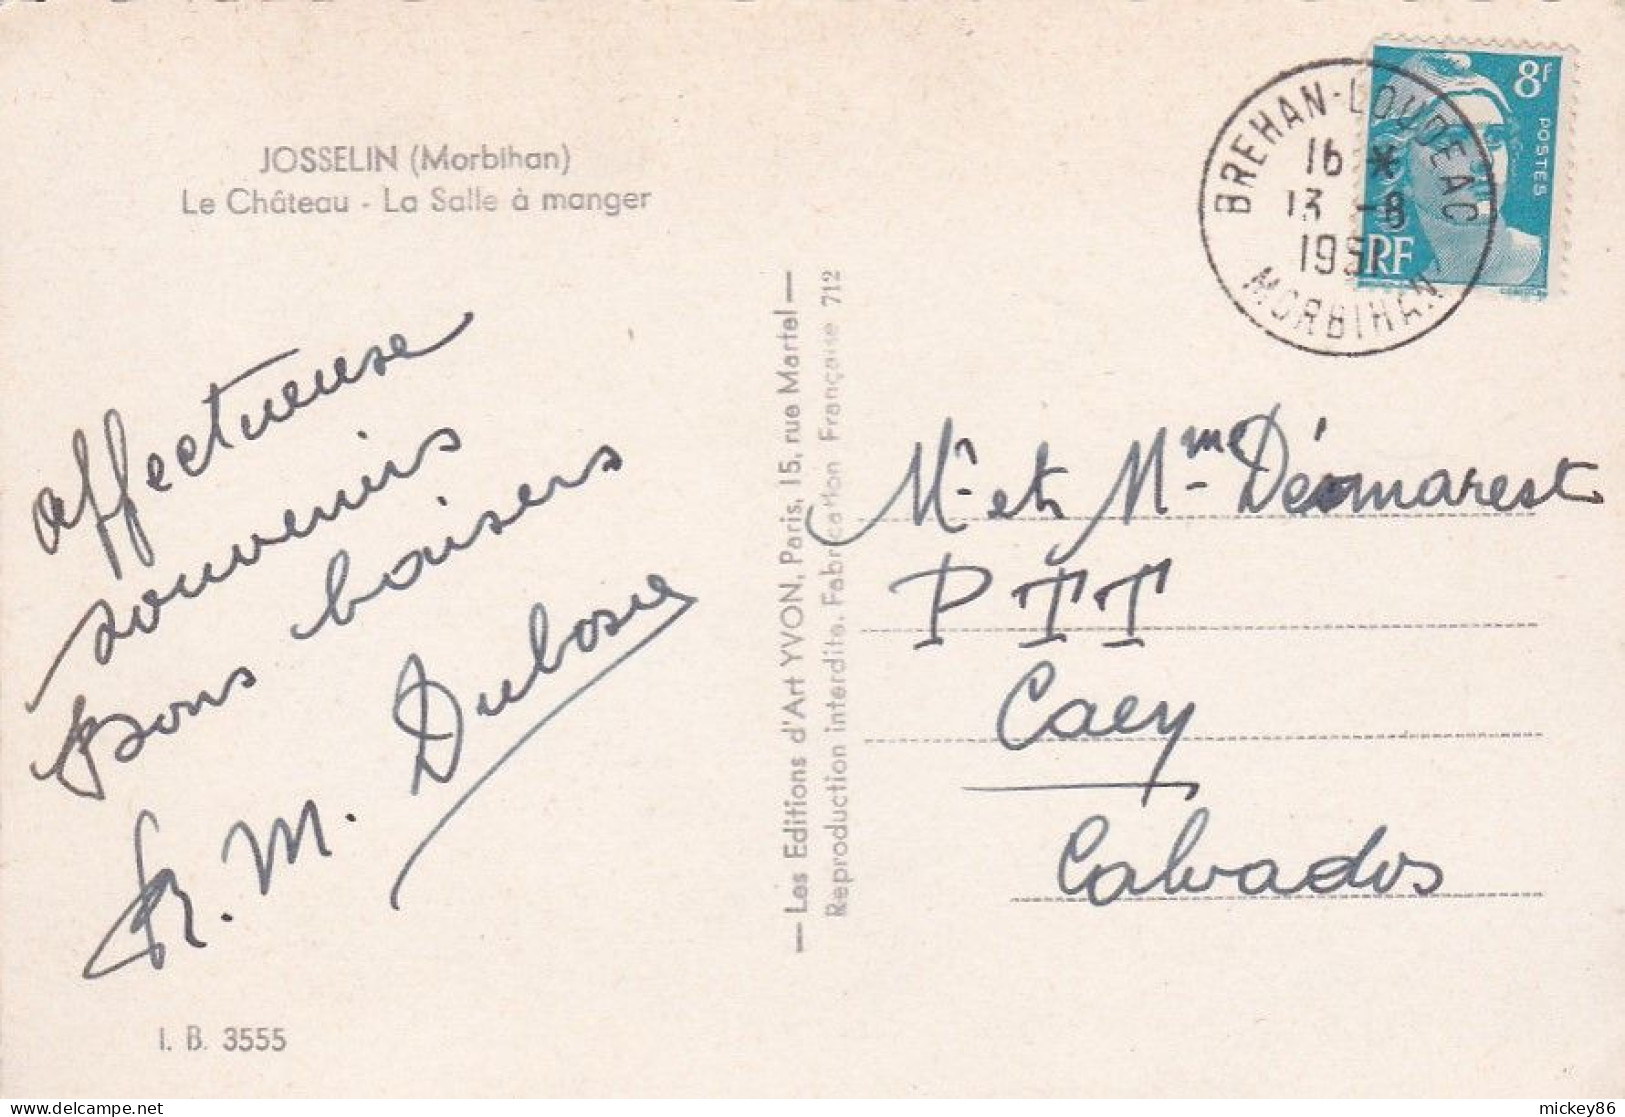 JOSSELIN (Morbihan)
Le Château - La Salle à manger
affectueuse
souvenirs
bons baisers
R. M. Dubosu
I. B. 3555
— Les Editions d'Art YVON, Paris, 15, rue Martel —
Reproduction interdite. Fabrication Française 712
8f
POSTES
RF
BREHAN-LOUDEAC
16 *
13 -8
1951
MORBIHAN
Mr et Mme Désmarest
PTT
Caen
Calvados
mickey86